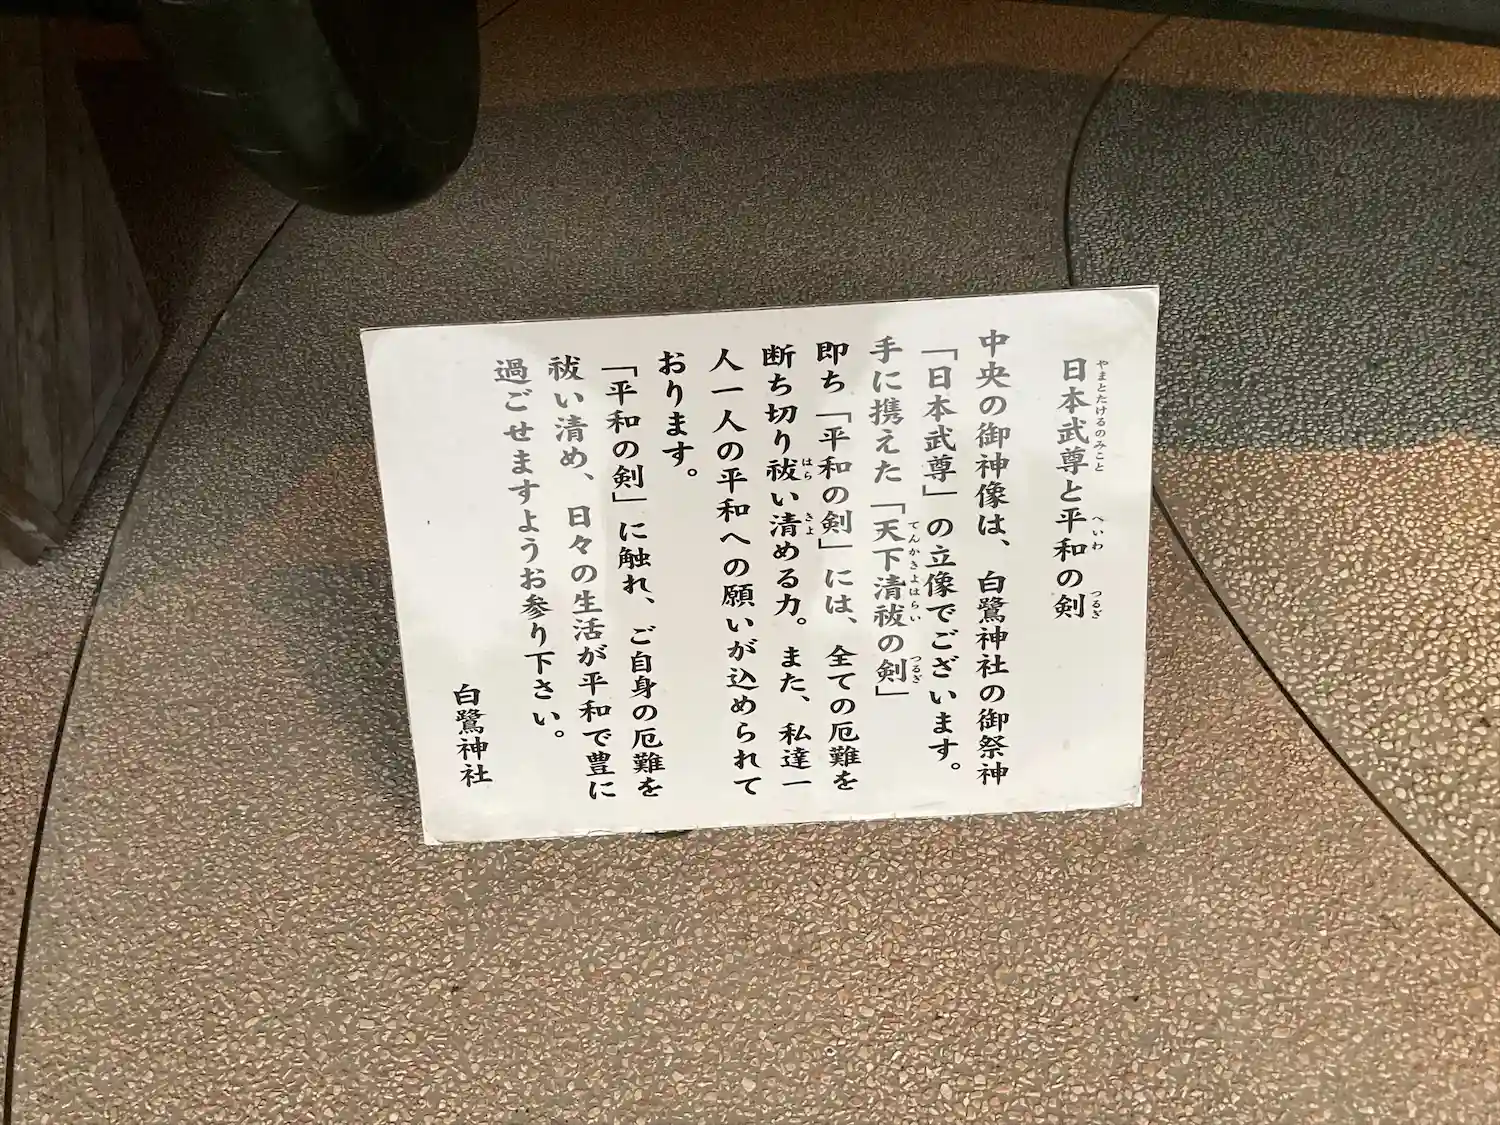 日本武尊と平和の剣
やまとたけるのみこと へいわ つるぎ
中央の御神像は、白鷺神社の御祭神
「日本武尊」の立像でございます。
手に携えた「天下清祓の剣」
てんかきよはらい つるぎ
即ち「平和の剣」には、全ての厄難を
断ち切り祓い清める力。また、私達一
はら きよ
人一人の平和への願いが込められて
おります。
「平和の剣」に触れ、ご自身の厄難を
祓い清め、日々の生活が平和で豊に
過ごせますようお参り下さい。
白鷺神社